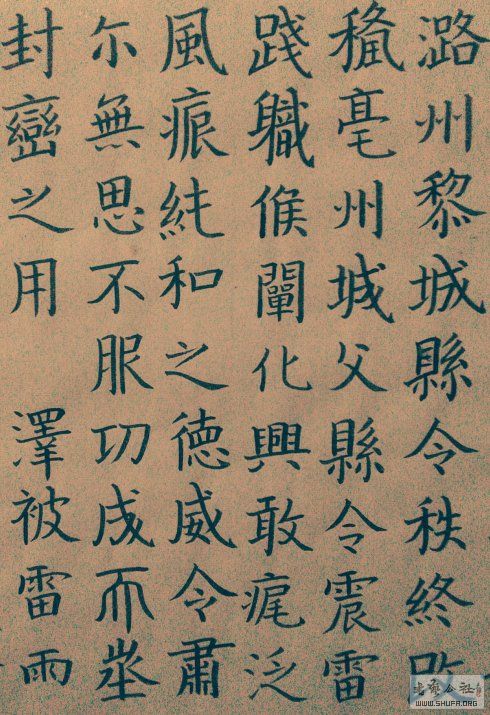 潞州黎城縣令秩終
亳州城父縣令震雷
踐職候闡化興敢泛
風痕純和之德威令肅
尔無思不服功成而
封巒之用 澤被雷雨
WWW.SHUFA.ORG